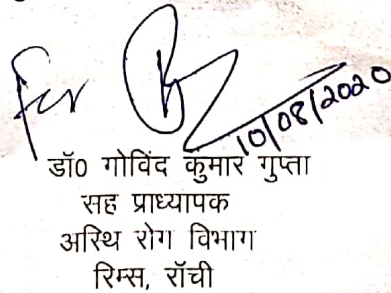 for
10/08/2020
डॉ0 गोविंद कुमार गुप्ता
सह प्राध्यापक
अस्थि रोग विभाग
रिम्स, रॉची